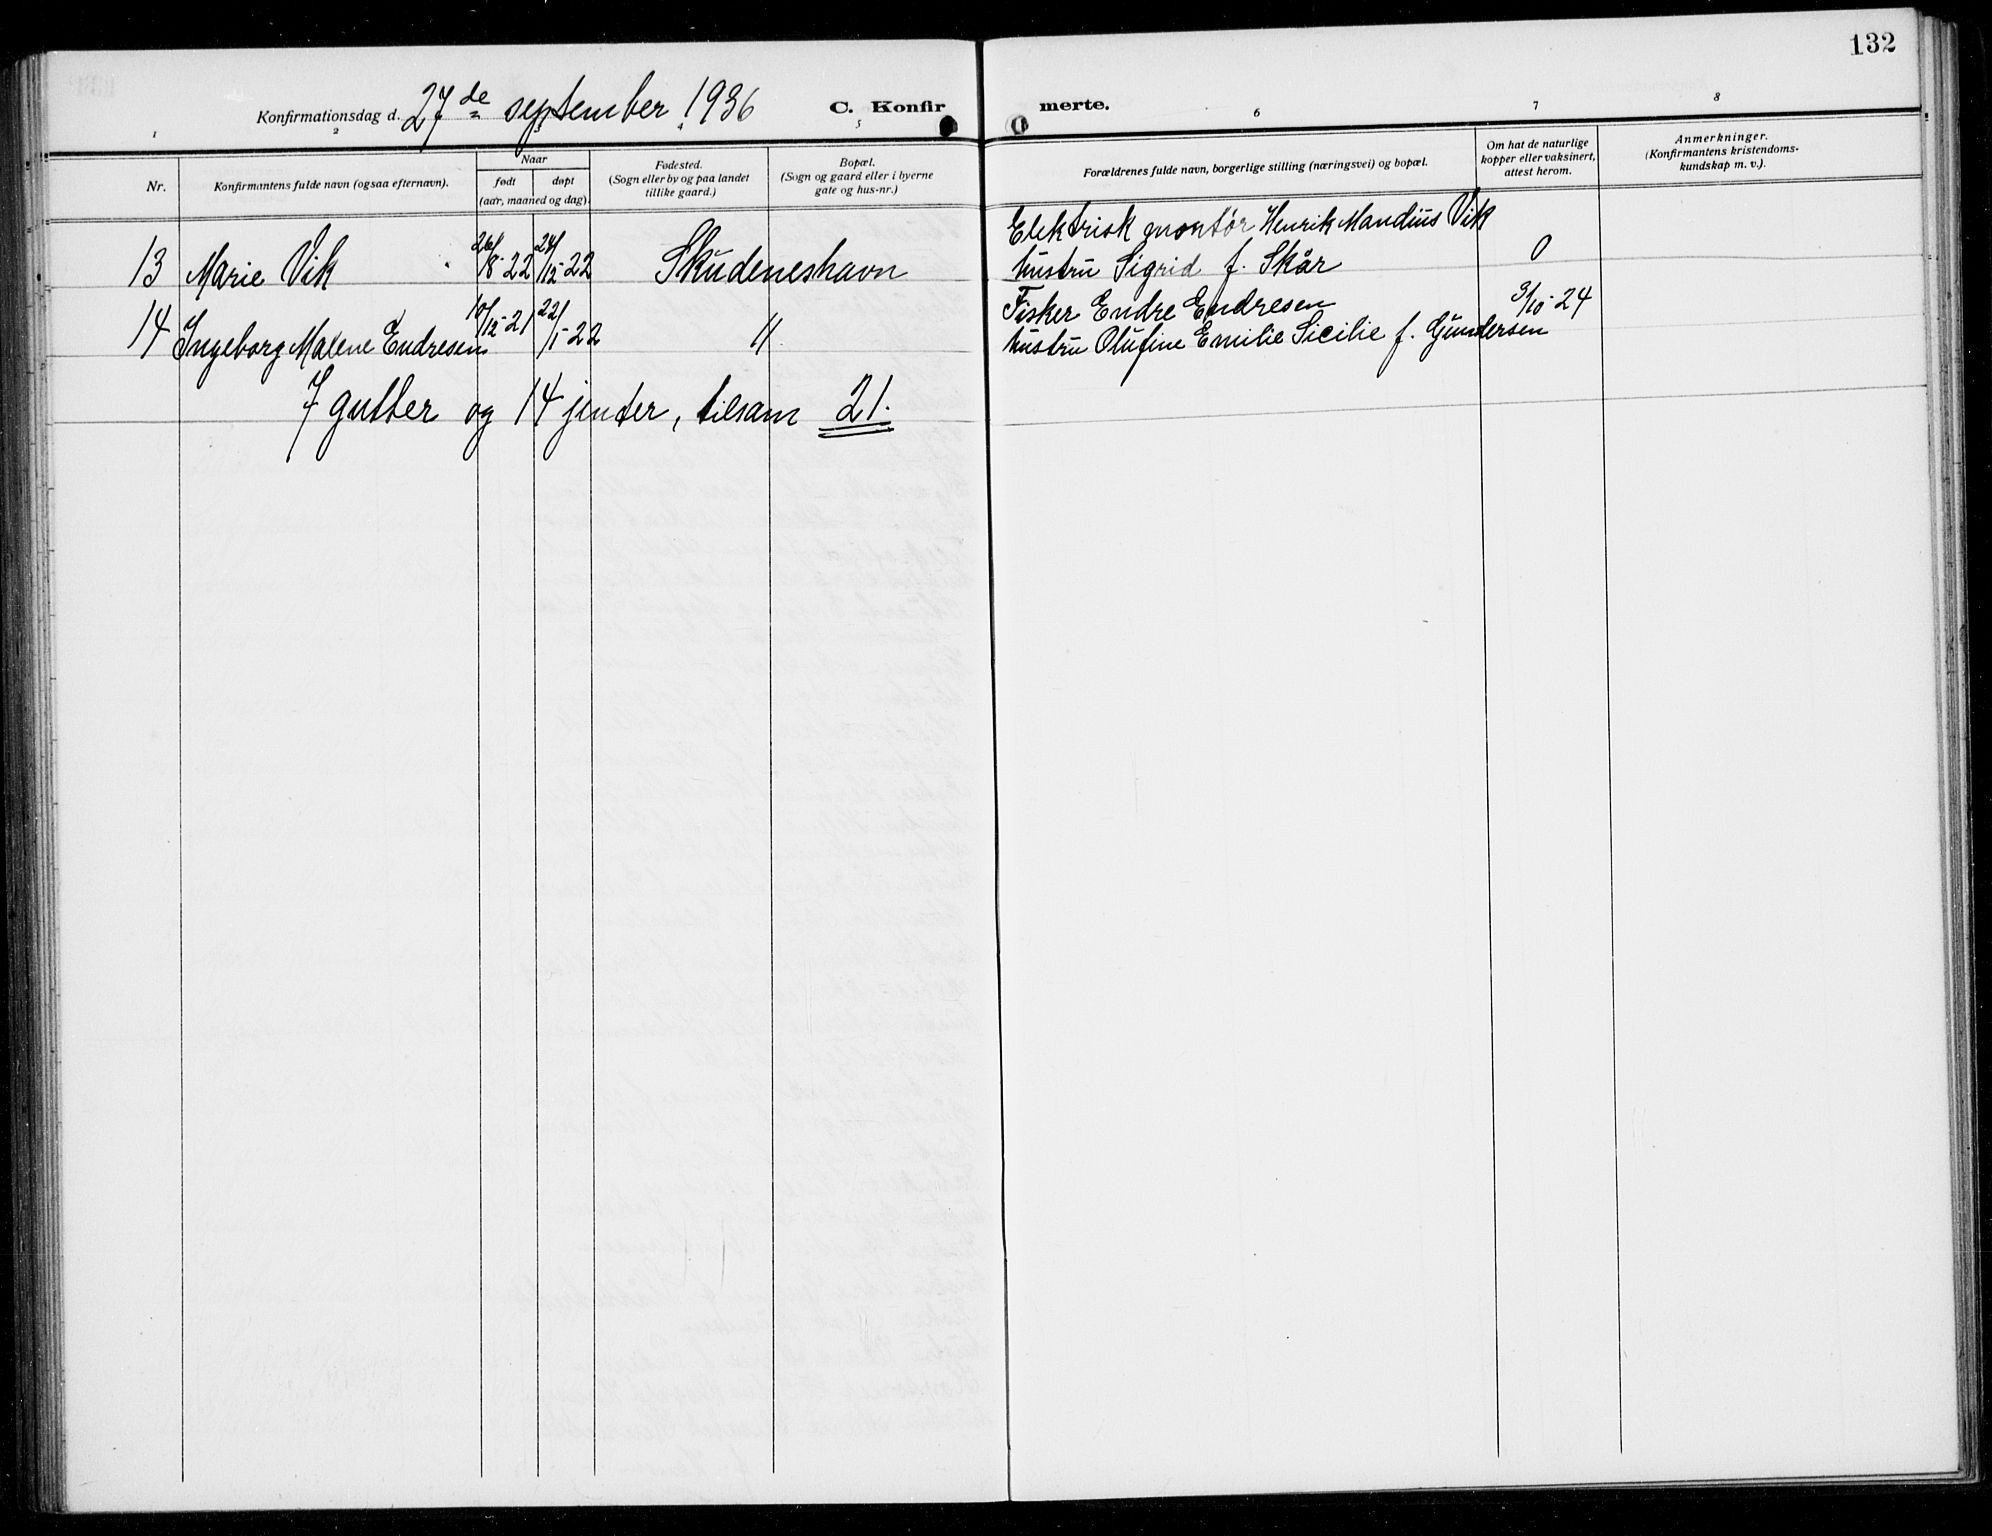 132
Konfirmationsdag d. 27de september 1936 C. Konfirmerte.
1 2 3 4 5 6 7 8
Nr.
Konfirmantens fulde navn (ogsaa efternavn).
Naar
født
døpt
(aar, maaned og dag).
Fødested.
(Sogn eller by og paa landet
tillike gaard.)
Bopæl.
(Sogn og gaard eller i byerne
gate og hus-nr.)
Forældrenes fulde navn, borgerlige stilling (næringsvei) og bopæl.
Om hat de naturlige
kopper eller vaksinert,
attest herom.
Anmerkninger.
(Konfirmantens kristendoms-
kundskap m. v.).
Elektrisk montør Henrik Mandius Vik
13 Marie Vik 26/8-22 24/12-22 Skudeneshavn hustru Sigrid f. Skår 0
Fisker Endre Endresen 3/10-24
14 Ingeborg Malene Endresen 10/12-21 22/1-22 " hustru Olufine Emilie Sicilie f. Gundersen
7 gutter og 14 jenter, tilsam 21.